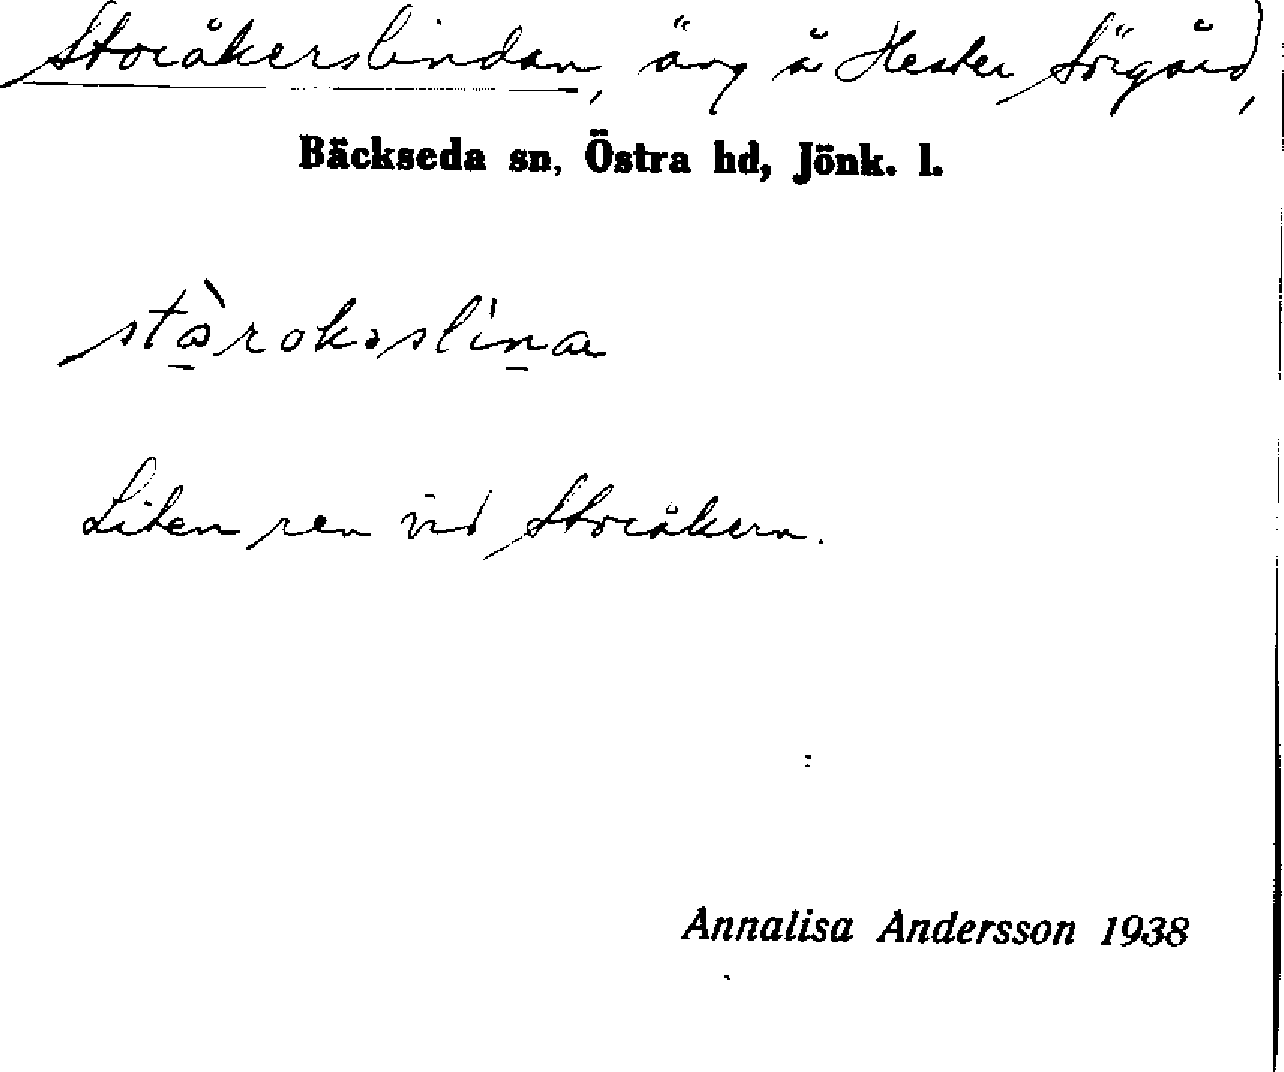 Storåkerslindan, äng å Hester Sörgård,
Bäckseda sn, Östra hd, Jönk. l.
Liten ren vid Storåkern.
Annalisa Andersson 1938